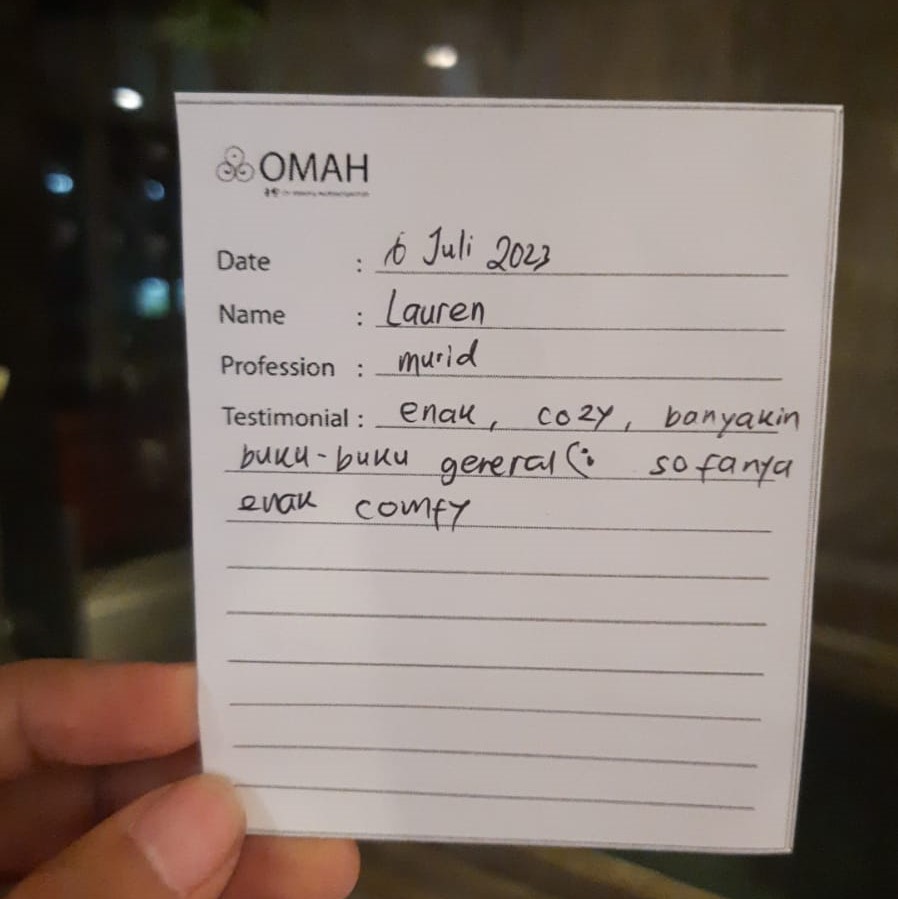 OMAH
Date : 6 Juli 2023
Name : Lauren
Profession : murid
Testimonial : enak, cozy, banyakin
buku-buku general (: sofanya
enak comfy